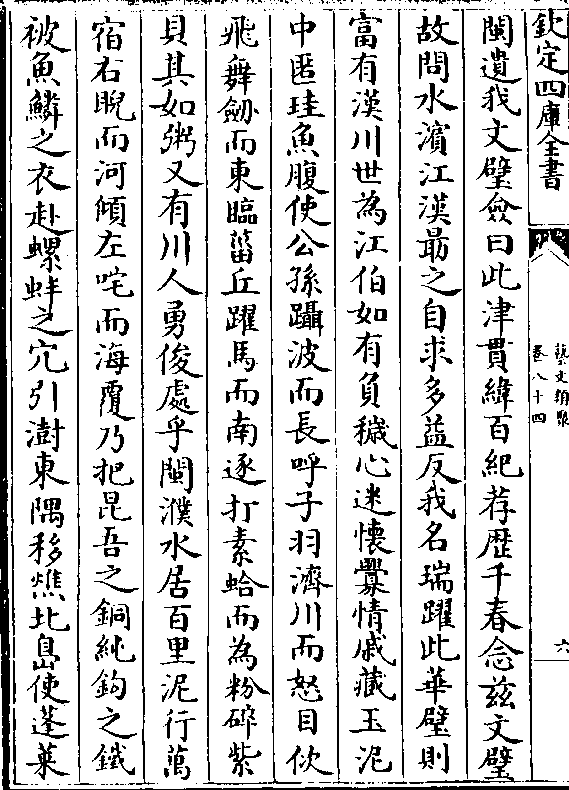 欽定四庫全書
藝文類聚
卷八十四
六
閩遺我文璧僉曰此津貫緯百紀荐歴千春念兹文璧
故問水濱江漢朂之自求多益反我名瑞躍此華璧則
富有漢川世為江伯如有負穢心迷懐釁情戚藏玉泥
中匿珪魚腹使公孫躡波而長呼子羽濟川而怒目佽
飛舞劒而東臨菑丘躍馬而南逐打素蛤而為粉碎紫
貝其如粥又有川人勇俊處乎閩濮水居百里泥行萬
宿右睨而河傾左咤而海覆乃把昆吾之銅純鈎之鐵
被魚鱗之衣赴螺蚌之穴引澍東隅移燋北島使蓬萊